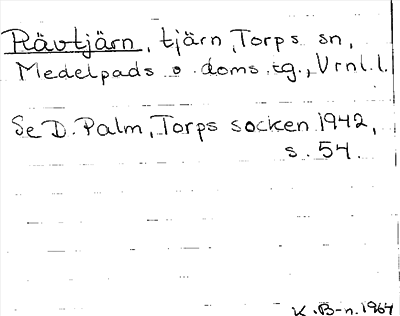 Rävtjärn, tjärn, Torps sn,
Medelpads ö. doms.tg., Vrnl.l.
Se D. Palm, Torps socken 1942,
s. 54.
K.B-n. 1964